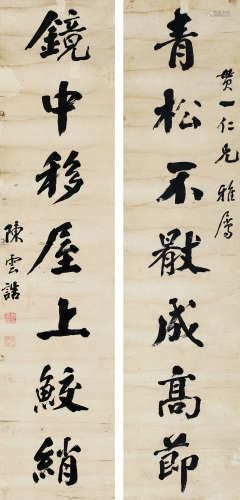 贊一仁兄雅属
青松不厭成高節
鏡中移屋上鮫綃
陳雲誥